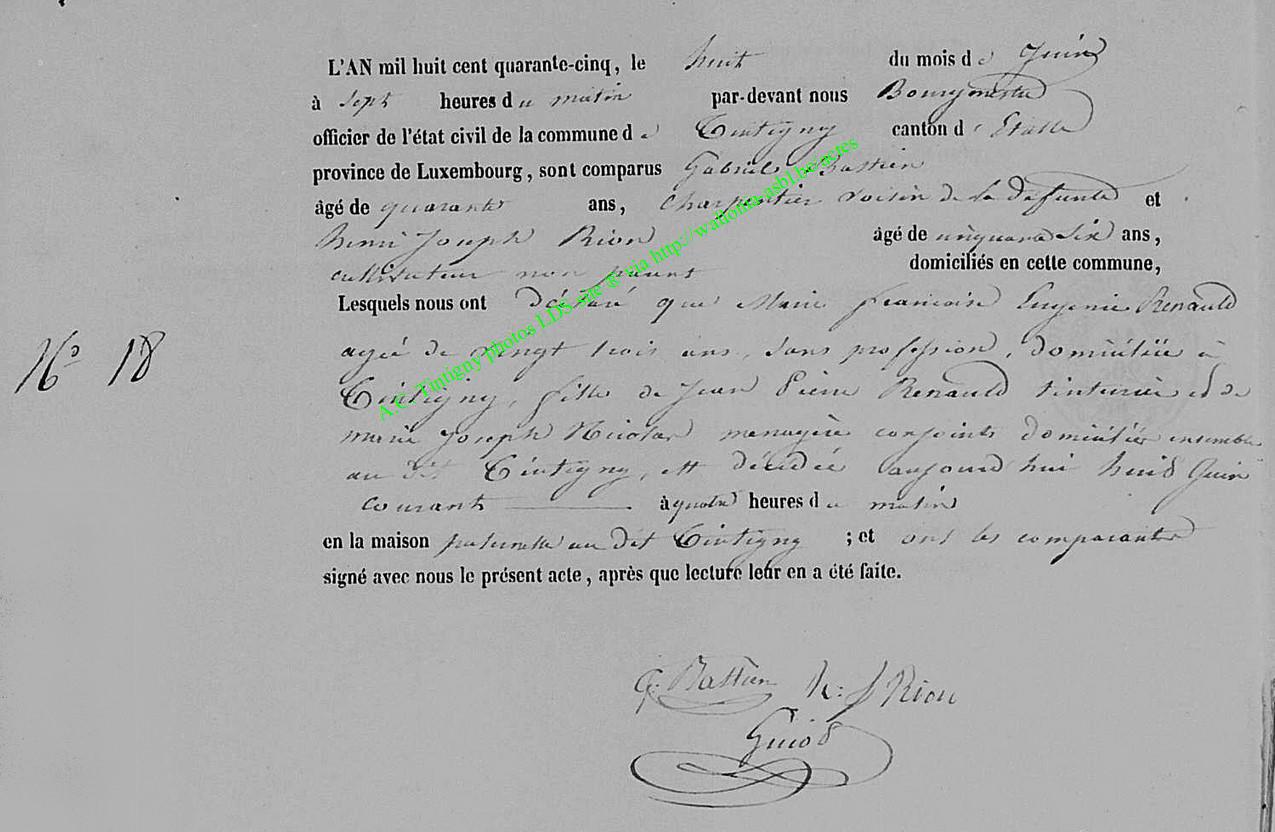 L'AN mil huit cent quarante-cinq, le huit du mois de Juin
à Sept heures du matin par-devant nous Bourgmestre
officier de l'état civil de la commune de Tintigny canton d'Etalle
province de Luxembourg, sont comparus Gabriel Bastien
âgé de quarante ans, Charpentier voisin de la defunte et
henri Joseph Rion âgé de cinquante Six ans,
cultivateur non parent domiciliés en cette commune,
Lesquels nous ont Déclaré que Marie françoise Eugenie Renauld
agée de vingt trois ans, Sans profession, domiciliée à
N° 18
Tintigny, fille de Jean Pierre Renauld tinturier et de
marie Joseph Nicolas menagère conjoints domiciliés ensemble
au dit Tintigny, est décédée aujourd'hui huit Juin
courant à quatre heures du matin
en la maison paternelle au dit Tintigny ; et ont les comparants
signé avec nous le présent acte, après que lecture leur en a été faite.
G. Bastien h: J Rion
Guiot
A.C. Tintigny photos LDS site @ via http://wallonia-asbl.be/actes